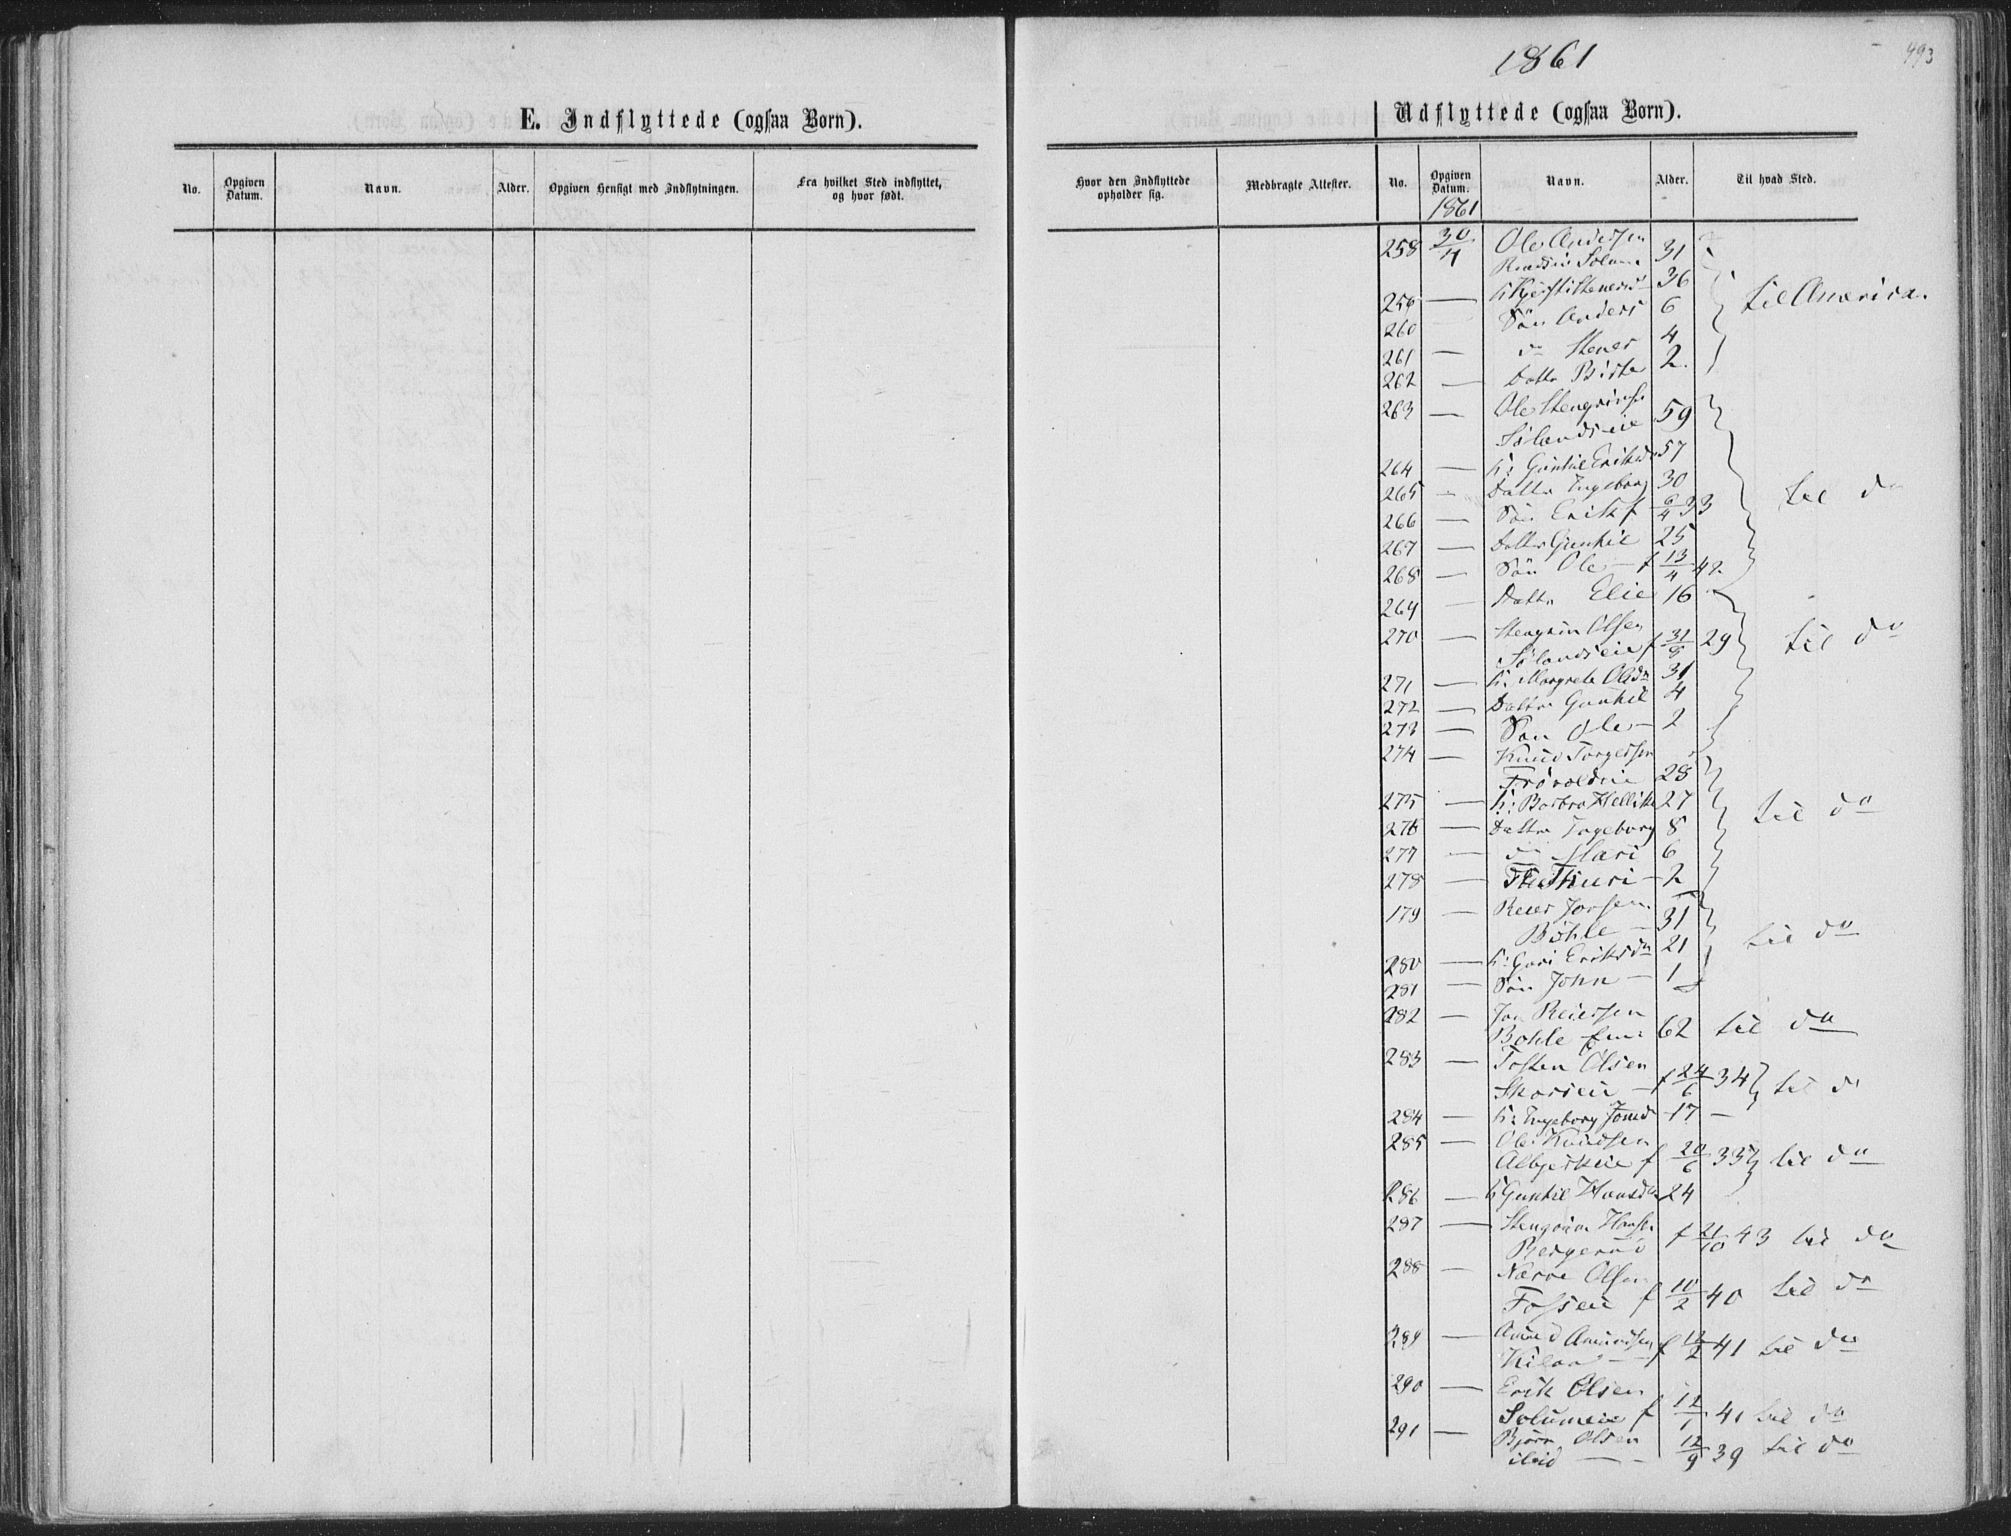 1861
493
E. Indflyttede (ogsaa Børn).
Udflyttede (ogsaa Børn).
No. Opgiven Datum. Navn. Alder. Opgiven Hensigt med Indflytningen. Fra hvilket Sted indflyttet, og hvor født.
Hvor den Indflyttede opholder sig. Medbragte Attester. No. Opgiven Datum. Navn. Alder. Til hvad Sted.
1861
258 30/4 Ole Andersen
31
259 — K Kjersti Stenersd 36 til America.
260 Søn Anders 6
261 — do Stener 4
262 — Dattr Birte 2
263 — Ole Stengrimsn
Sølandseie 59
264 — K: Gunhil Eriksd 57
265 — Dattr Ingeborg 30 til do
266 — Søn Erik f 6/4 33
267 — Dattr Gunhil 25
268 — Søn Ole — f 13/4 42
269 — Dattr Elie 16
270 — Stengrim Olsen
Sølandseie f 31/8 29 til do
271 — K. Margrete Olsdr 31
272 — Dattr Gunhil 4
273 — Søn Ole — 2
274 — Knud Torgersen
Frøvoldeie 28
275 — K: Barbro Helliks 27 til do
276 — Dattr Ingeborg 8
277 — do Mari 6
278 — Thuri — 2
179 — Reier Jonsen
Bøhle — 31 til do
280 — K: Guri Eriksdr 21
281 — Søn John — 1
282 — Jon Reiersen
Bøhle 62 til do
283 — Tosten Olsen
f 24/6 34 til do
284 — K: Ingeborg Jonsd 17 —
285 — Ole Knudsen
Albjerkeie f 20/6 33 til do
286 — K Gunhil Hansdr 24
287 — Stengrim Hansn
f 21/10 43 til do
288 — Narve Olsen
Fosseie f 10/2 40 til do
289 — Amund Amundsen
f 12/2 41 til do
290 — Erik Olsen
Solumeie f 12/1 41 til do
291 — Bjørn Olsen
ibid — 12/9 39 til do